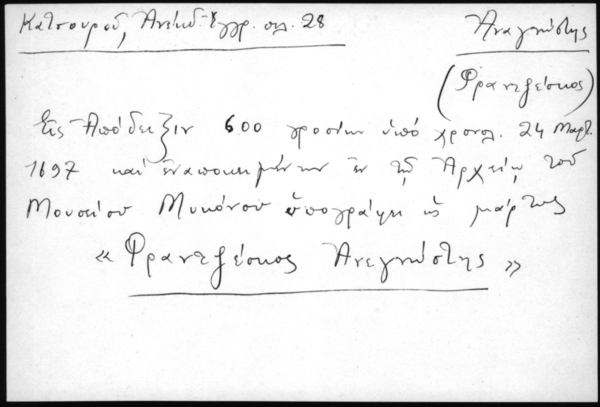 Κατσουροῦ, Ἀνέκδ. Ἔγγρ. σελ. 28
Ἀναγνώστης
(Φραντζέσκος)
Εἰς Ἀπόδειξιν 600 γροσίων ὑπὸ χρονολ. 24 Μαρτ.
1697 καὶ ἐναποκειμένην ἐν τῷ Ἀρχείῳ τοῦ
Μουσείου Μυκόνου ὑπογράφει ὡς μάρτυς
« Φραντζέσκος Ἀνεγνώστης »